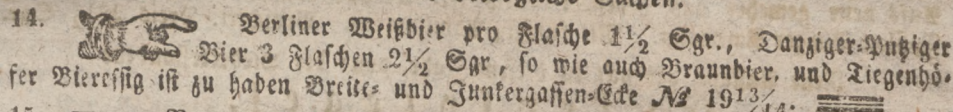 14. Berliner Weißbier pro Flasche 1½ Sgr., Danziger-Putziger
Bier 3 Flaschen 2½ Sgr, so wie auch Braunbier, und Tiegenhö-
fer Bieressig ist zu haben Breite- und Junkergassen-Ecke № 1913/14.